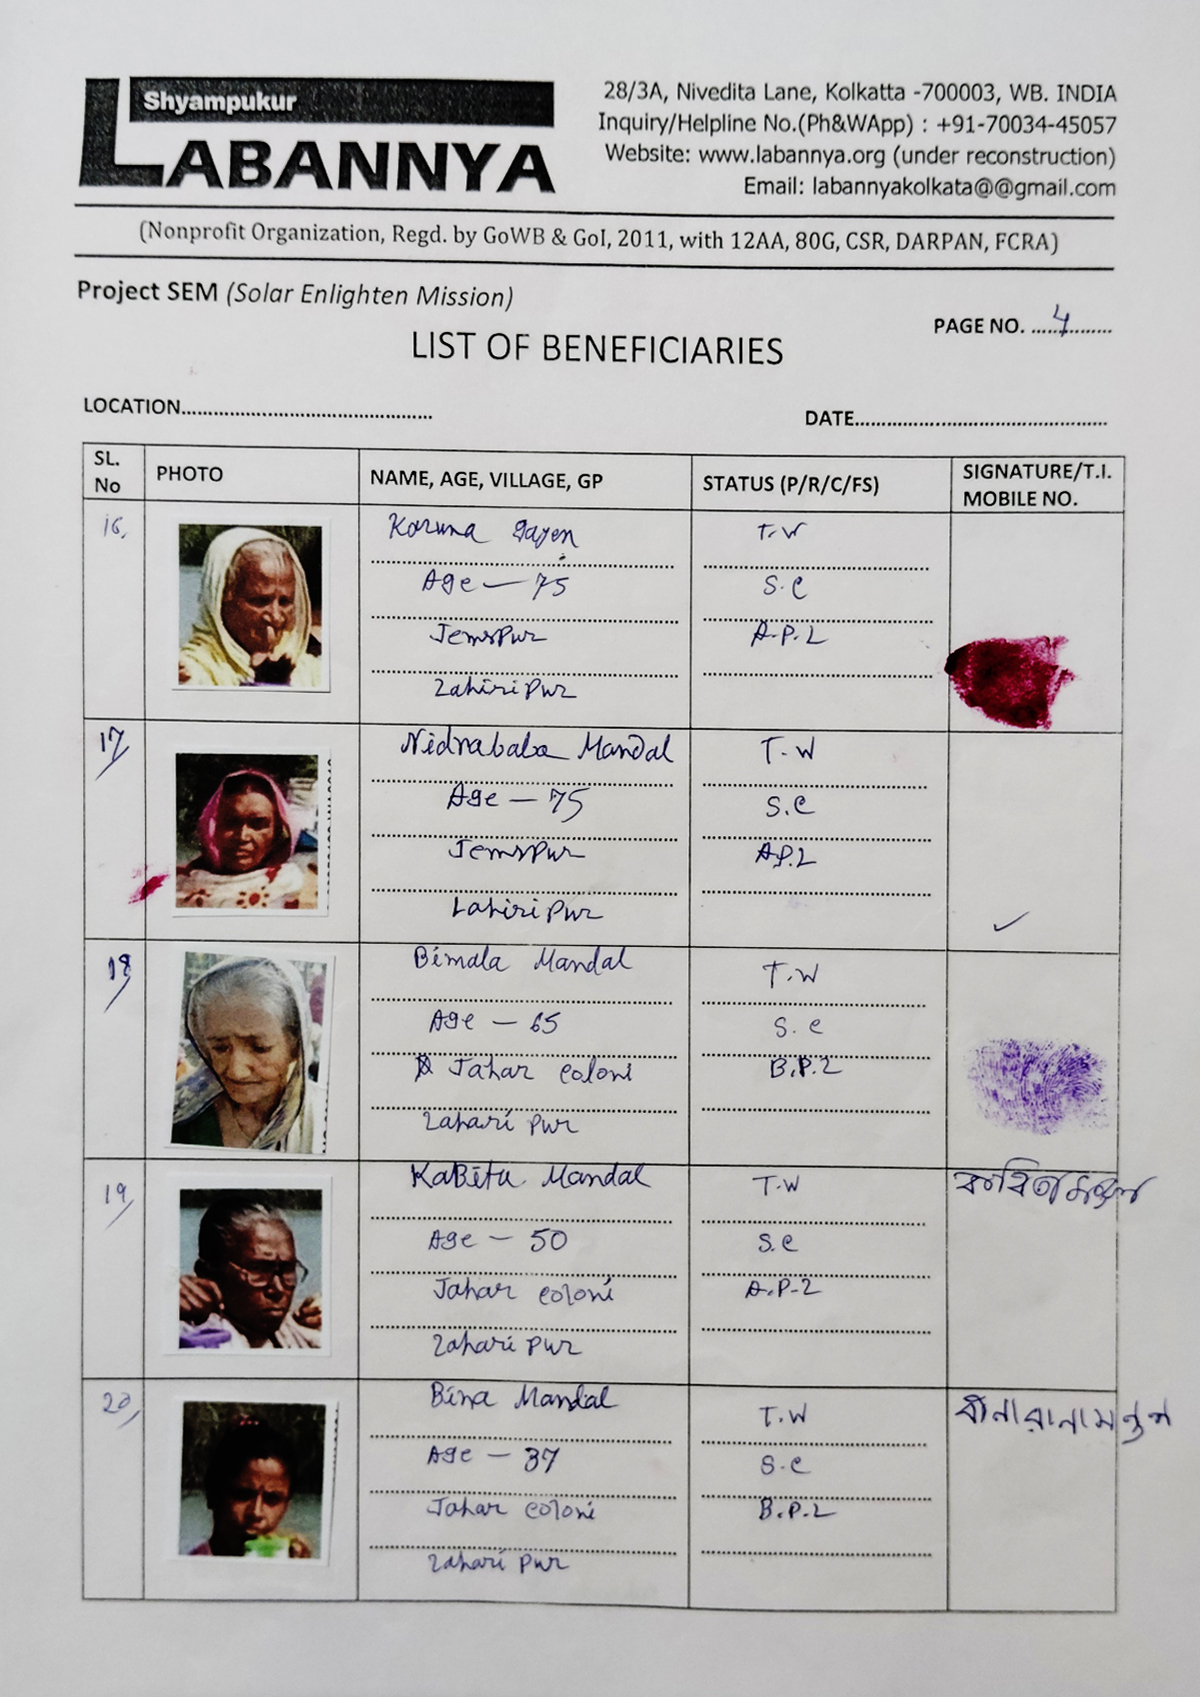 Shyampukur
LABANNYA
28/3A, Nivedita Lane, Kolkatta -700003, WB. INDIA
Inquiry/Helpline No.(Ph&WApp) : +91-70034-45057
Website: www.labannya.org (under reconstruction)
Email: labannyakolkata@@gmail.com
(Nonprofit Organization, Regd. by GoWB & GoI, 2011, with 12AA, 80G, CSR, DARPAN, FCRA)
Project SEM (Solar Enlighten Mission)
PAGE NO. ....4....
LIST OF BENEFICIARIES
LOCATION..........................................
DATE..........................................
SL. No PHOTO NAME, AGE, VILLAGE, GP STATUS (P/R/C/FS) SIGNATURE/T.I. MOBILE NO.
16, Karuna Gayen T.W
Age — 75 S.C
Jemspur A.P.L
Lahiripur
17/ Nidrabala Mandal T.W
Age — 75 S.C
Jemspur A.P.L
Lahiripur
18/ Bimala Mandal T.W
Age — 65 S.C
Jahar coloni B.P.L
Lahari pur
19/ KaBita Mandal T.W কবিতা মন্ডল
Age — 50 S.C
Jahar coloni A.P.L
Lahari pur
20, Bina Mandal T.W
Age — 37 S.C
Jahar coloni B.P.L
Lahari pur